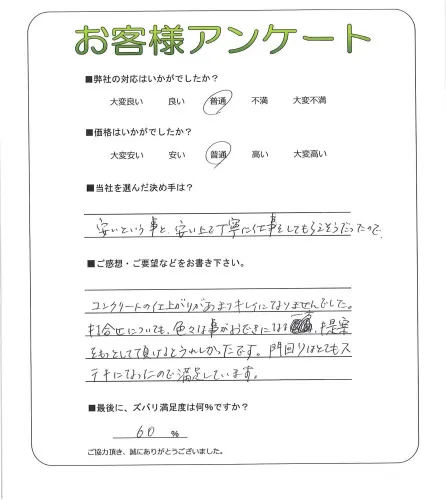 お客様アンケート
■弊社の対応はいかがでしたか?
大変良い 良い 普通 不満 大変不満
■価格はいかがでしたか?
大変安い 安い 普通 高い 大変高い
■当社を選んだ決め手は?
安いという事と、安い上で丁寧に仕事をしてもらえそうだったので
■ご感想・ご要望などをお書き下さい。
コンクリートの仕上がりがあまりキレイになりませんでした。
打合せについても、色々な事がおできになる 提案
をもっとして頂けるとうれしかったです。門回りはとてもス
テキになったので満足しています。
■最後に、ズバリ満足度は何%ですか?
60 %
ご協力頂き、誠にありがとうございました。